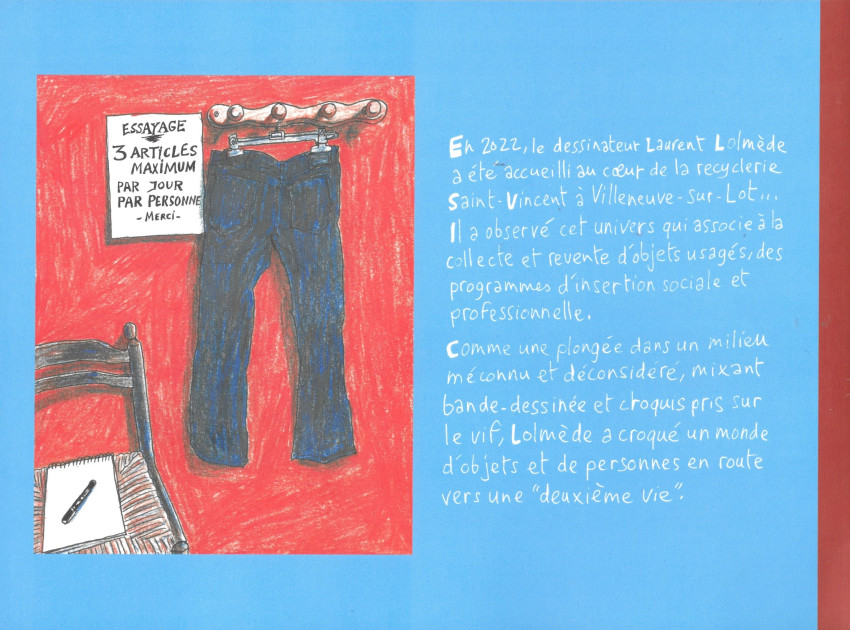 ESSAYAGE
3 ARTICLES
MAXIMUM
PAR JOUR
PAR PERSONNE
- MERCI -
En 2022, le dessinateur Laurent Lolmède
a été accueilli au cœur de la recyclerie
Saint-Vincent à Villeneuve-sur-Lot...
Il a observé cet univers qui associe à la
collecte et revente d'objets usagés, des
programmes d'insertion sociale et
professionnelle.
Comme une plongée dans un milieu
méconnu et déconsidéré, mixant
bande-dessinée et croquis pris sur
le vif, Lolmède a croqué un monde
d'objets et de personnes en route
vers une "deuxième vie".